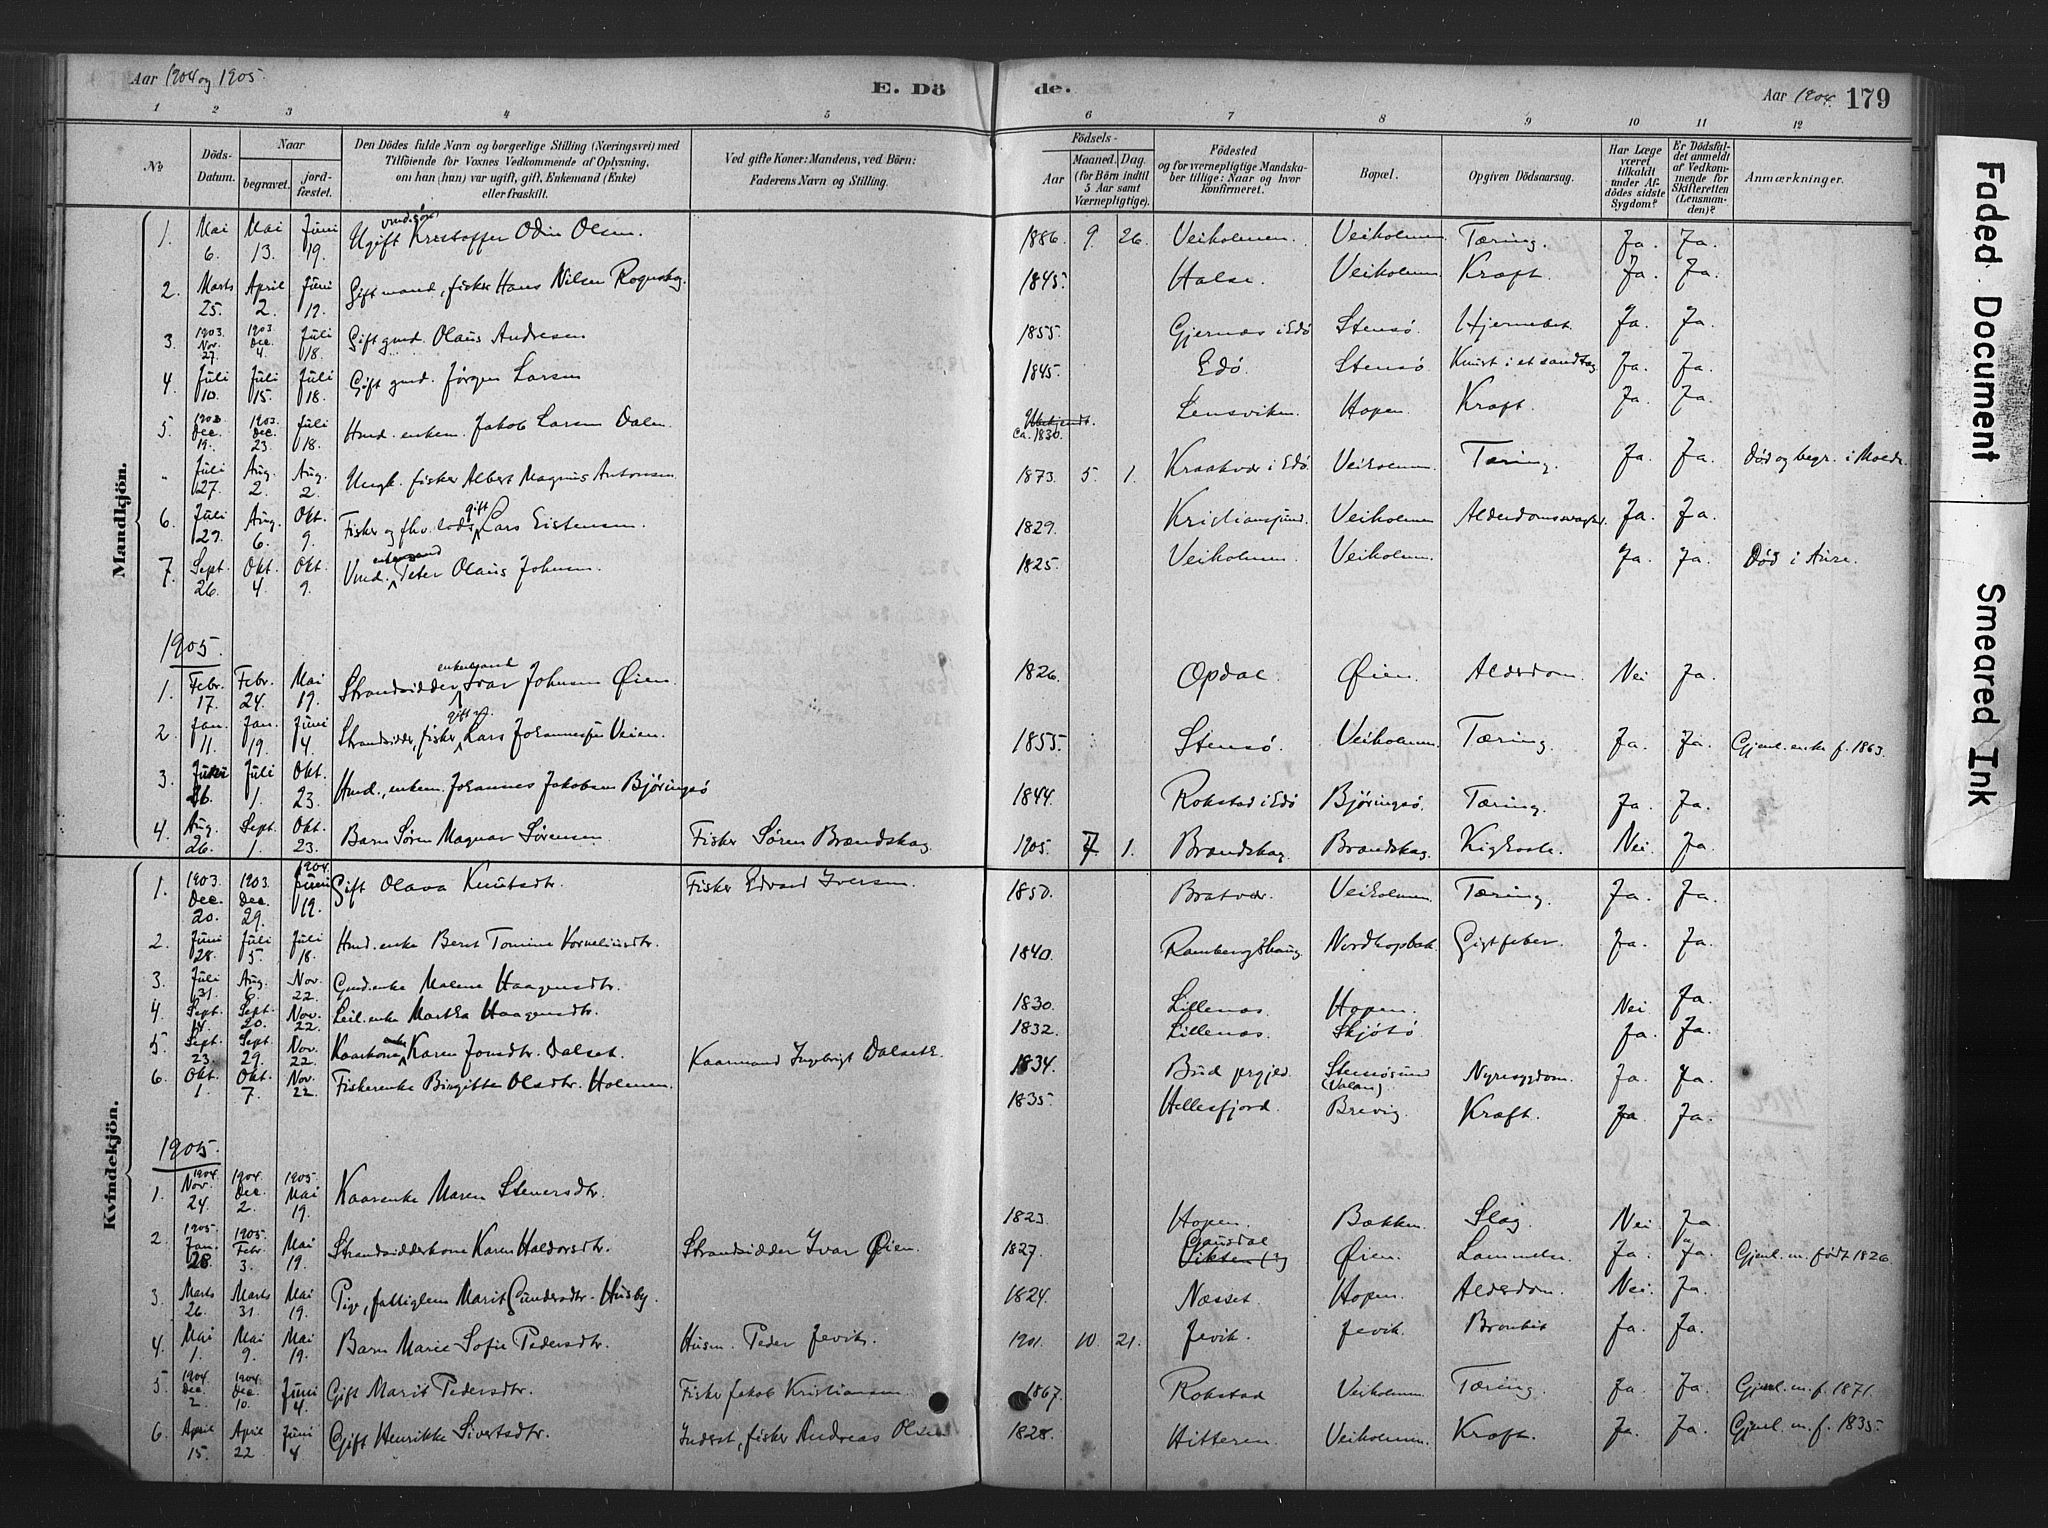 Aar 1904 og 1905.
E. Dö
de.
Aar 1904. 179
1 2 3 4 5 6 7 8 9 10 11 12
No.
Döds-Datum.
Naar
begravet.
jord-fæstet.
Den Dödes fulde Navn og borgerlige Stilling (Næringsvei) med
Tilföiende for Voxnes Vedkommende af Oplysning,
om han (hun) var ugift, gift, Enkemand (Enke)
eller fraskilt.
Ved gifte Koner: Mandens, ved Börn:
Faderens Navn og Stilling.
Födsels-
Aar
Maaned. Dag.
(for Börn indtil
5 Aar samt
Værnepligtige).
Födested
og for værnepligtige Mandska-
ber tillige: Naar og hvor
konfirmeret.
Bopæl.
Opgiven Dödsaarsag.
Har Læge
været
tilkaldt
under Af-
dödes sidste
Sygdom?
Er Dödsfal-
det anmeldt
af Vedkom-
mende for
Skifteretten
(Lensman-
den)?
Anmærkninger.
Mandkjön.
1. Mai 6. Mai 13. Juni 19. Ugift Kristoffer Odin Olsen. 1886. 9. 26. Veiholmen. Veiholmen. Tæring. Ja. Ja.
2. Marts 25. April 2. Juni 19. Gift mand, fisker Hans Nilsen Rognskag. 1845. Halse. Veiholmen. Kræft. Ja. Ja.
3. 1903 Nov. 27. 1903 Dec. 4. Juli 18. Gift gmd. Olaus Andresen 1855. Gjernæs i Edö Stensö. Hjernebet. Ja. Ja.
4. Juli 10. Juli 15. Juli 18. Gift gmd. Jörgen Larsen 1845. Edö. Stensö Knust i et sandtag Ja. Ja.
5. 1903. Dec. 19. 1903. Dec. 23. Juli 18. Hmd. enkem. Jakob Larsen Dalen. Ubekjendt. ca. 1830. Lensviken. Hopen. Kræft. Ja. Ja.
" Juli 27. Aug. 2. Aug. 2. Ungk. fisker Albert Magnus Antonsen 1873. 5. 1. Kraakvær i Edö. Veiholmen. Tæring. Ja. Ja. Död og begr. i Molde.
6. Juli 29. Aug. 6. Okt. 9. Fisker og fhv. lods, gift Lars Eistensen. 1829. Kristiansund. Veiholmen Alderdomssvaghed. Ja. Ja.
7. Sept. 26. Okt. 4. Okt. 9. Vmd. enkemand Peter Olaus Johnsen. 1825. Veiholmen. Veiholmen. Ja. Ja. Död i Aure.
1905.
1. Febr. 17. Febr. 24. Mai 19. Strandsidder, enkemand Ivar Johnsen Øien. 1826. Opdal. Øien. Alderdom. Nei Ja.
2. Jan. 11. Jan. 19. Juni 4. Strandsidder, fisker, gift Lars Johannesen Veien. 1855. Stensö. Veiholmen. Tæring. Ja. Ja. Gjenl. enke f. 1863.
3. Juni 26. Juli 1. Okt. 23. Hmd., enkem. Johannes Jakobsen Björingsö 1844. Rokstad i Edö Björingsö. Tæring. Ja. Ja.
4. Aug. 26. Sept. 1. Okt. 23. Barn Sören Magnar Sörensen Fisker Sören Brændskag. 1905. 7. 1. Brandskag. Brandskag. Kighoste. Nei. Ja.
Kvindekjön.
1. 1903. Dec. 20. 1903. Dec. 29. 1904. Juni 19. Gift Olava Knutsdtr. Fisker Edvard Iversen. 1850. Bratvær. Veiholmen. Tæring. Ja. Ja.
2. Juni 28. Juli 5. Juli 18. Hmd. enke Beret Tomine Korneliusdtr. 1840. Rambergshaug. Nordhopbak Gigtfeber. Ja. Ja.
3. Juli 31. Aug. 6. Nov. 22. Gmd. enke Malene Haagensdtr. 1830. Lillenæs. Hopen. Nei. Ja.
4. Sept. 14. Sept. 20. Nov. 22. Leil. enke Martha Haagensdtr. 1832. Lillenæs. Skjötö Ja. Ja.
5. Sept. 23. Sept. 29. Nov. 22. Kaarkone enke Karen Jonsdtr. Dalset. Kaarmand Ingebrigt Dalset. 1834. Bud prgjed. Stensösund (Valan). Nyresygdom. Ja. Ja.
6. Okt. 1. Okt. 7. Nov. 22. Fiskerenke Birgitte Olsdtr. Holmen. 1835. Hellesfjord. Brevig. Kræft. Ja. Ja.
1905.
1. 1904 Nov. 24. 1904. Dec. 2. 1905. Mai 19. Kaarenke Maren Stenersdtr. 1823. Hopen. Bakken. Slag. Nei Ja.
2. 1905. Jan. 28. 1905. Febr. 3. Mai 19. Strandsidderkone Karen Haldorsdtr. Strandsidder Ivar Øien. 1827. Gausdal Øien. Lammelse. Ja. Ja. Gjenl. m. född 1826.
3. Marts 26. Marts 31. Mai 19. Pige, fattiglem Marit Gundersdtr. Husby. 1824. Næsset. Hopen. Alderdom. Nei. Ja.
4. Mai 1. Mai 9. Mai 19. Barn Marie Sofie Pedersdtr. Husm. Peder Jevik. 1901. 10 21. Jevik. Jevik. Bronkit Ja. Ja.
5. 1904 Dec. 2. 1904. Dec. 10. Juni 4. Gift Marit Pedersdtr. Fisker Jakob Kristiansen. 1867. Rokstad Veiholmen. Tæring. Ja. Ja. Gjenl. m. f. 1871.
6. April 15. April 22 Juni 4 Gift Henrikke Sivertsdtr. Inderst, fisker Andreas Olsen 1828. Hitteren. Veiholmen. Kræft. Ja. Ja. Gjenl. m. f. 1835.
Faded Document
Smeared Ink